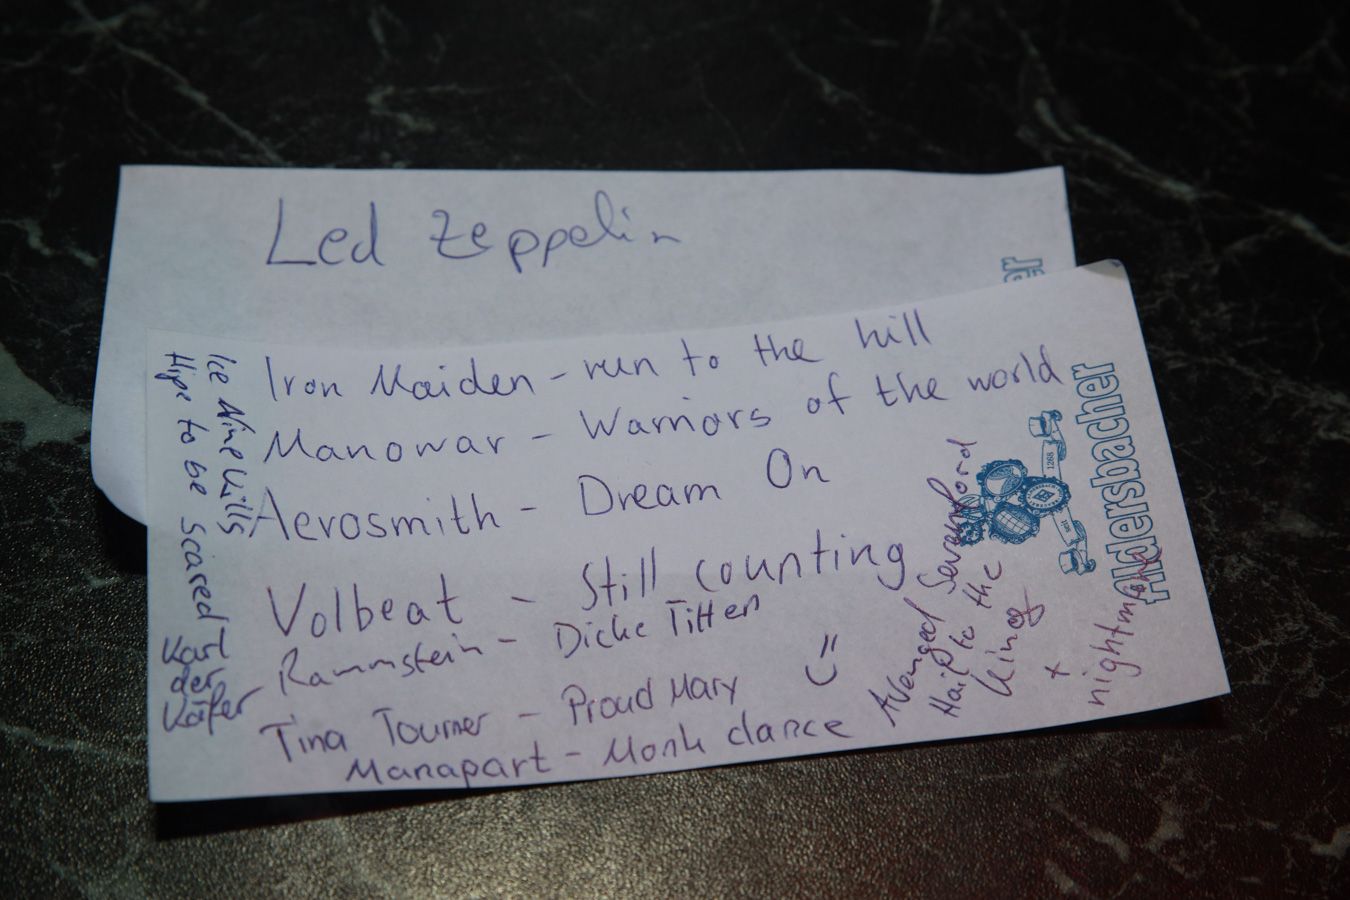 Led Zeppelin
er
Iron Maiden - run to the hill
Manowar - Warriors of the world
Aerosmith - Dream On
Volbeat - Still counting
Rammstein - Dicke Titten
Tina Tourner - Proud Mary
Manapart - Monk dance
Ice Nine Kills
Hipe to be Scared
Karl
der
Käfer
Avenged Sevenford
Hail to the
King
+
nightmare
Aldersbacher
seit
1268